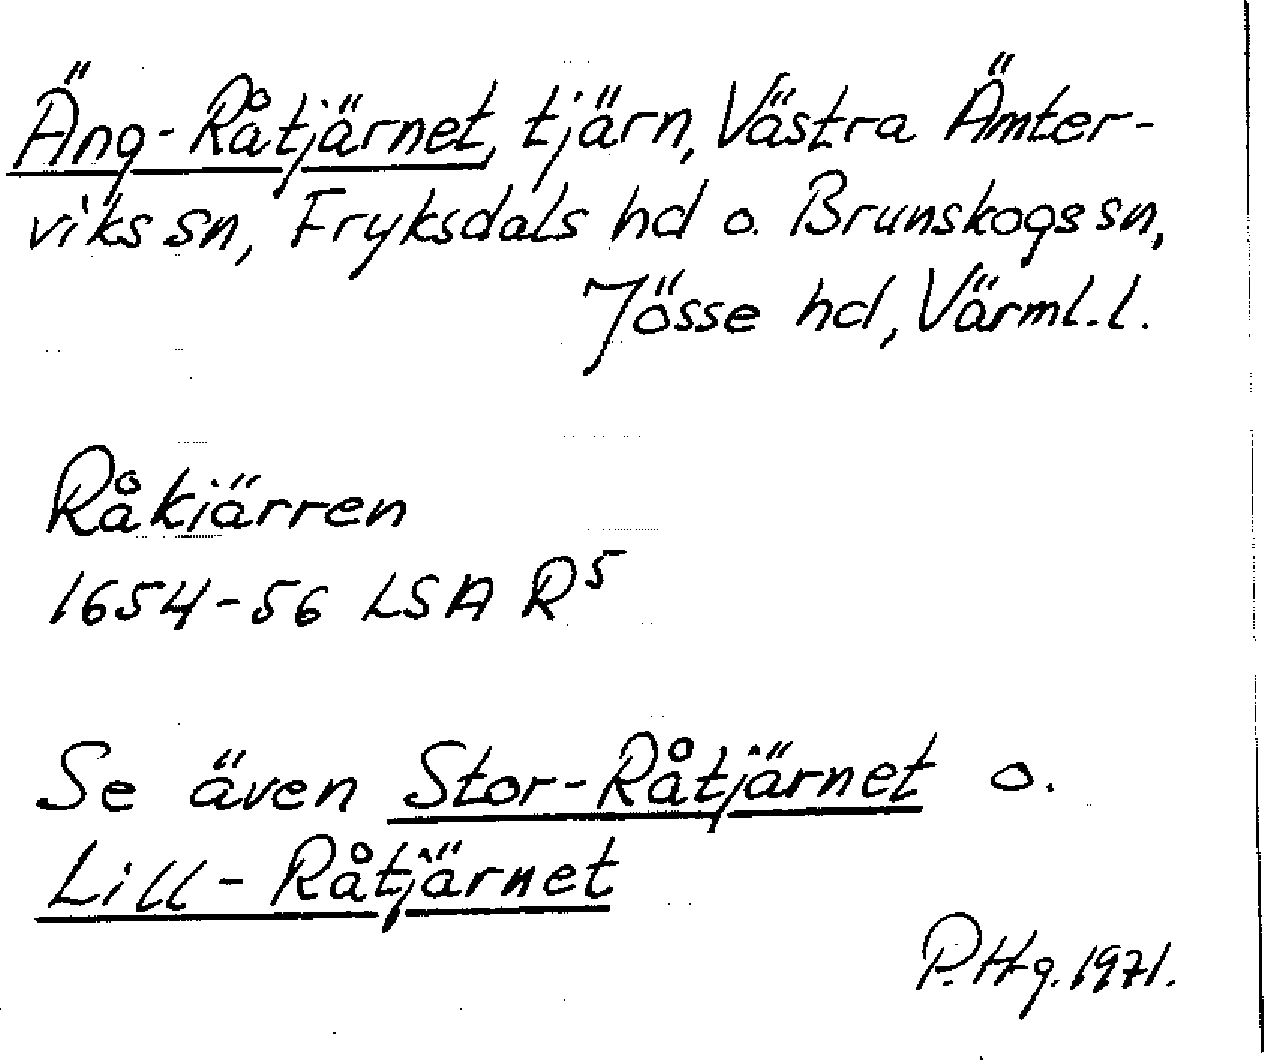 Äng-Råtjärnet, tjärn, Västra Ämter-
viks sn, Fryksdals hd o. Brunskogs sn,
Jösse hd, Värml. l.
Råkiärren
1654-56 LSA R⁵
Se även Stor-Råtjärnet o.
Lill-Råtjärnet
P.Hg. 1971.